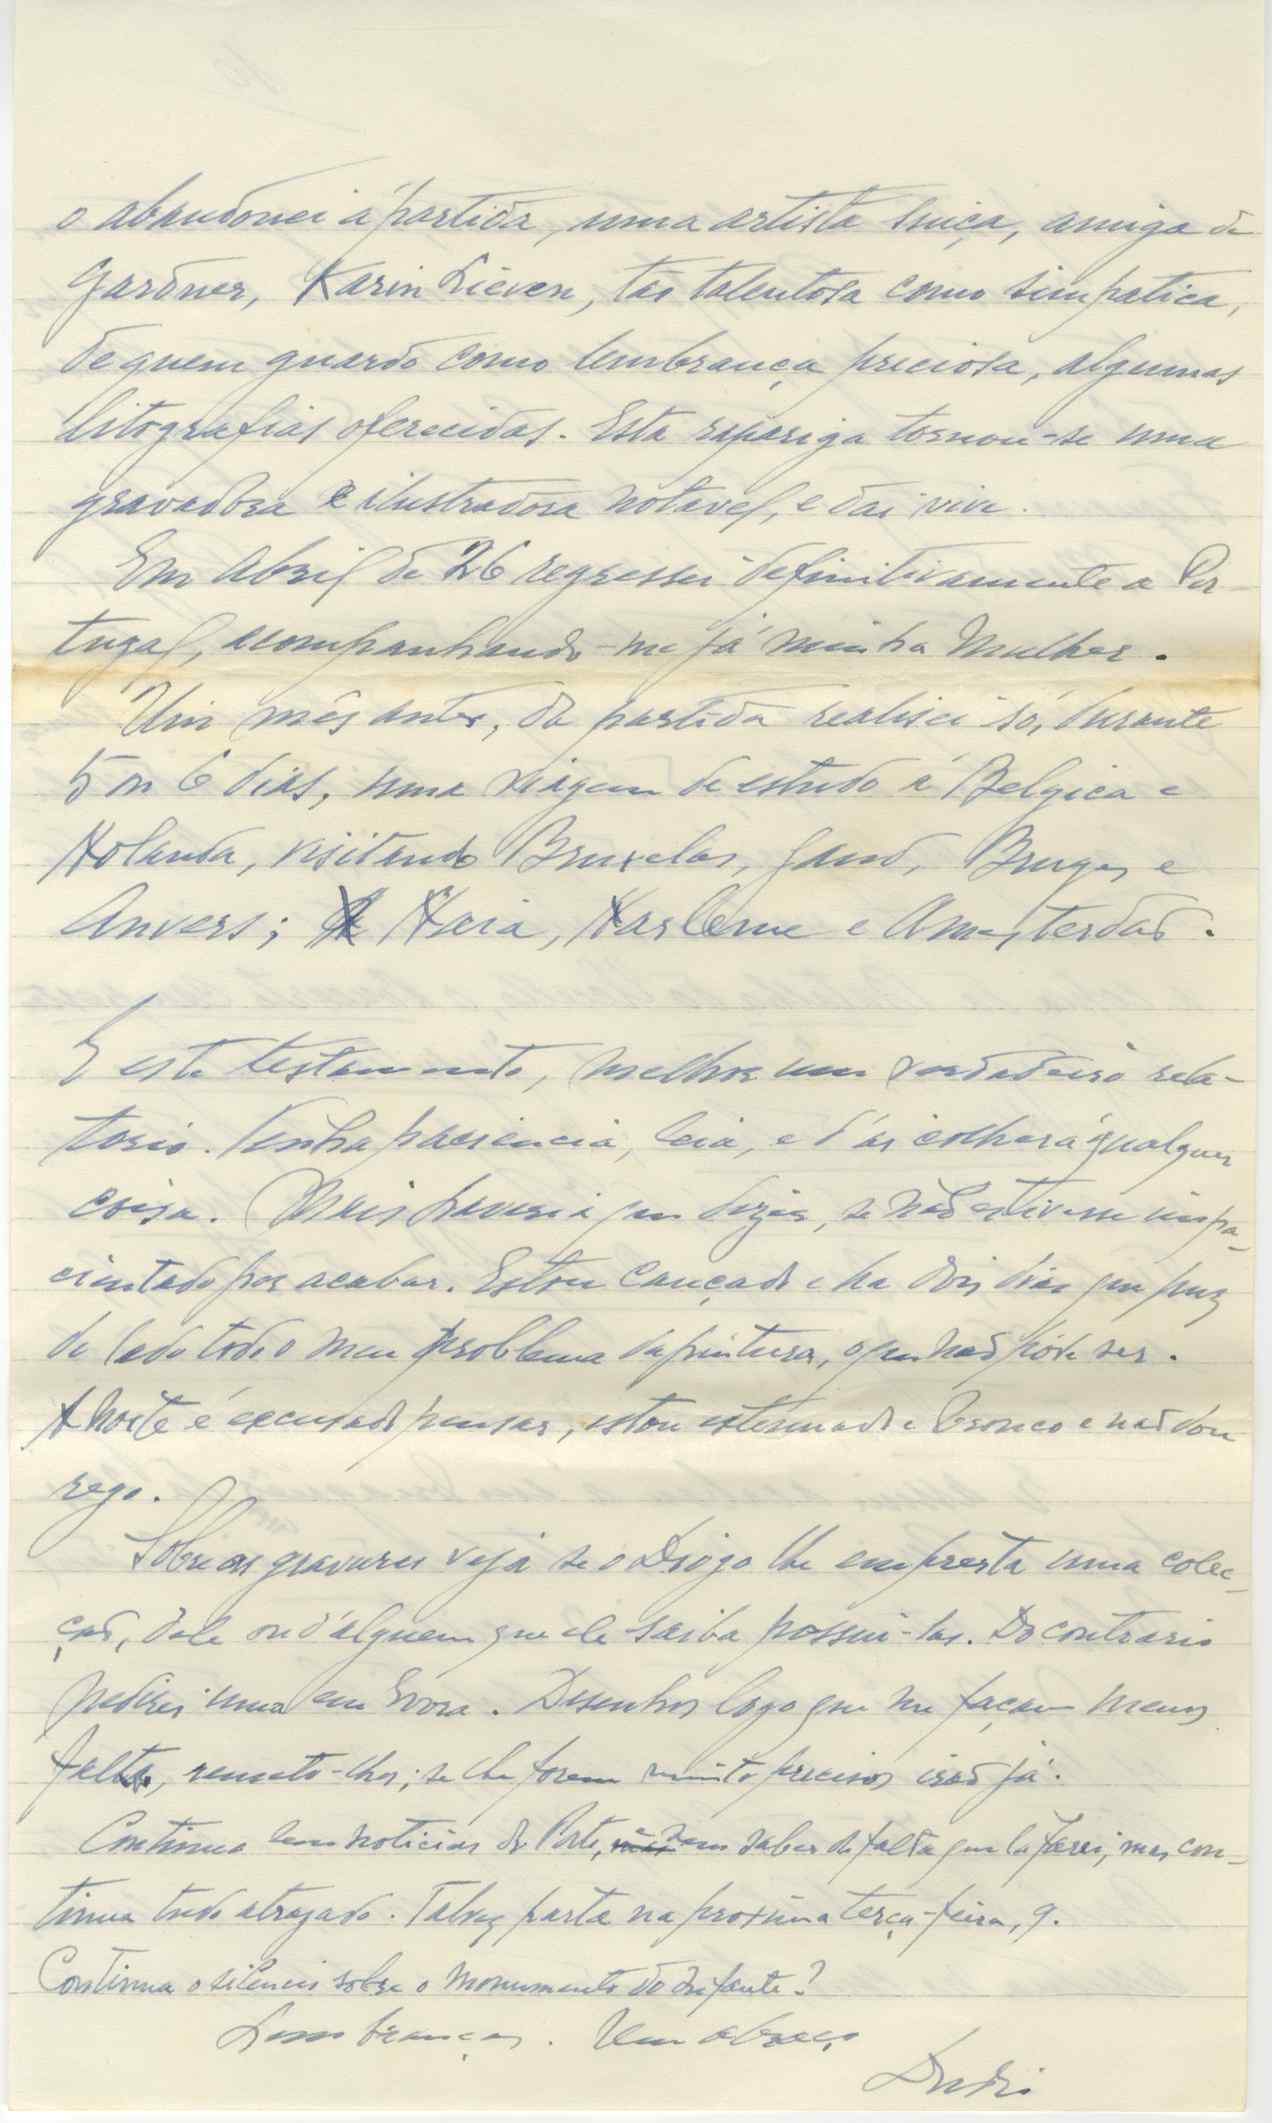 o abandonei á partida, uma artista suiça, amiga de
Gardner, Karin Lieven, tão talentosa como simpatica,
de quem guardo como lembrança preciosa, algumas
litografias oferecidas. Esta rapariga tornou-se uma
gravadora e ilustradora notavel, e dai vive.
Em Abril de 26 regressei definitivamente a Por-
tugal, acompanhando-me já minha Mulher.
Um mês antes, da partida realisei só, durante
5 ou 6 dias, uma viagem de estudo á Belgica e
Holanda, visitando Bruxelas, Gand, Bruges e
Anvers; Haia, Harleme e Amesterdão.
E este testamento, melhor um verdadeiro rela-
torio. Tenha paciencia, leia, e d'ai colherá qualquer
coisa. Mais haveria que dizer, se não estivesse impa-
cientado por acabar. Estou cançado e ha dois dias que puz
de lado todo o meu problema da pintura, o que não pode ser.
A noite é escusado pensar, estou estenuado e bronco e não dou
rego.
Sobre as gravuras veja se o Diogo lhe empresta uma colec-
ção, dele ou d'alguem que ele saiba possui-las. Do contrario
pedirei uma em Evora. Desenhos logo que me façam menos
falta, remeto-lhos; se lhe forem muito precisos irão já.
Continuo sem noticias do Porto, sem saber da falta que lá farei, mas con-
tinua tudo atrazado. Talvez parta na proxima terça-feira, 9.
Continua o silencio sobre o Monumento do Infante?
Lembranças. Um abraço
Dordio